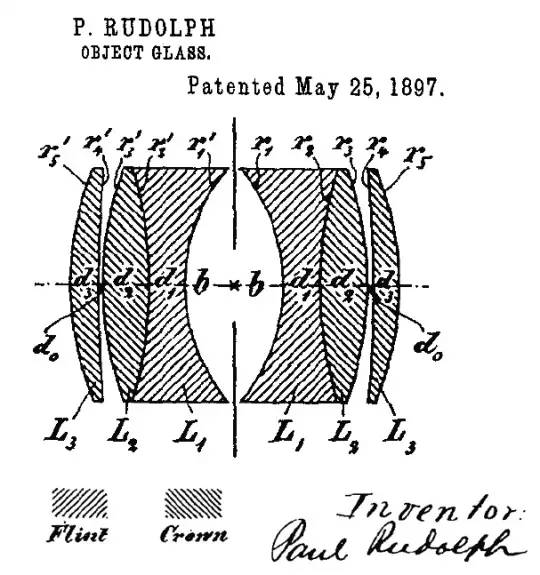 P. RUDOLPH
OBJECT GLASS.
Patented May 25, 1897.
r₅' r₄' r₃' r₃' r₁' r₁ r₂ r₃ r₄ r₅
d₃ d₂ d₁ b b d₁ d₂ d₃
d₀ d₀
L₃ L₂ L₁ L₁ L₂ L₃
Flint Crown
Inventor:
Paul Rudolph